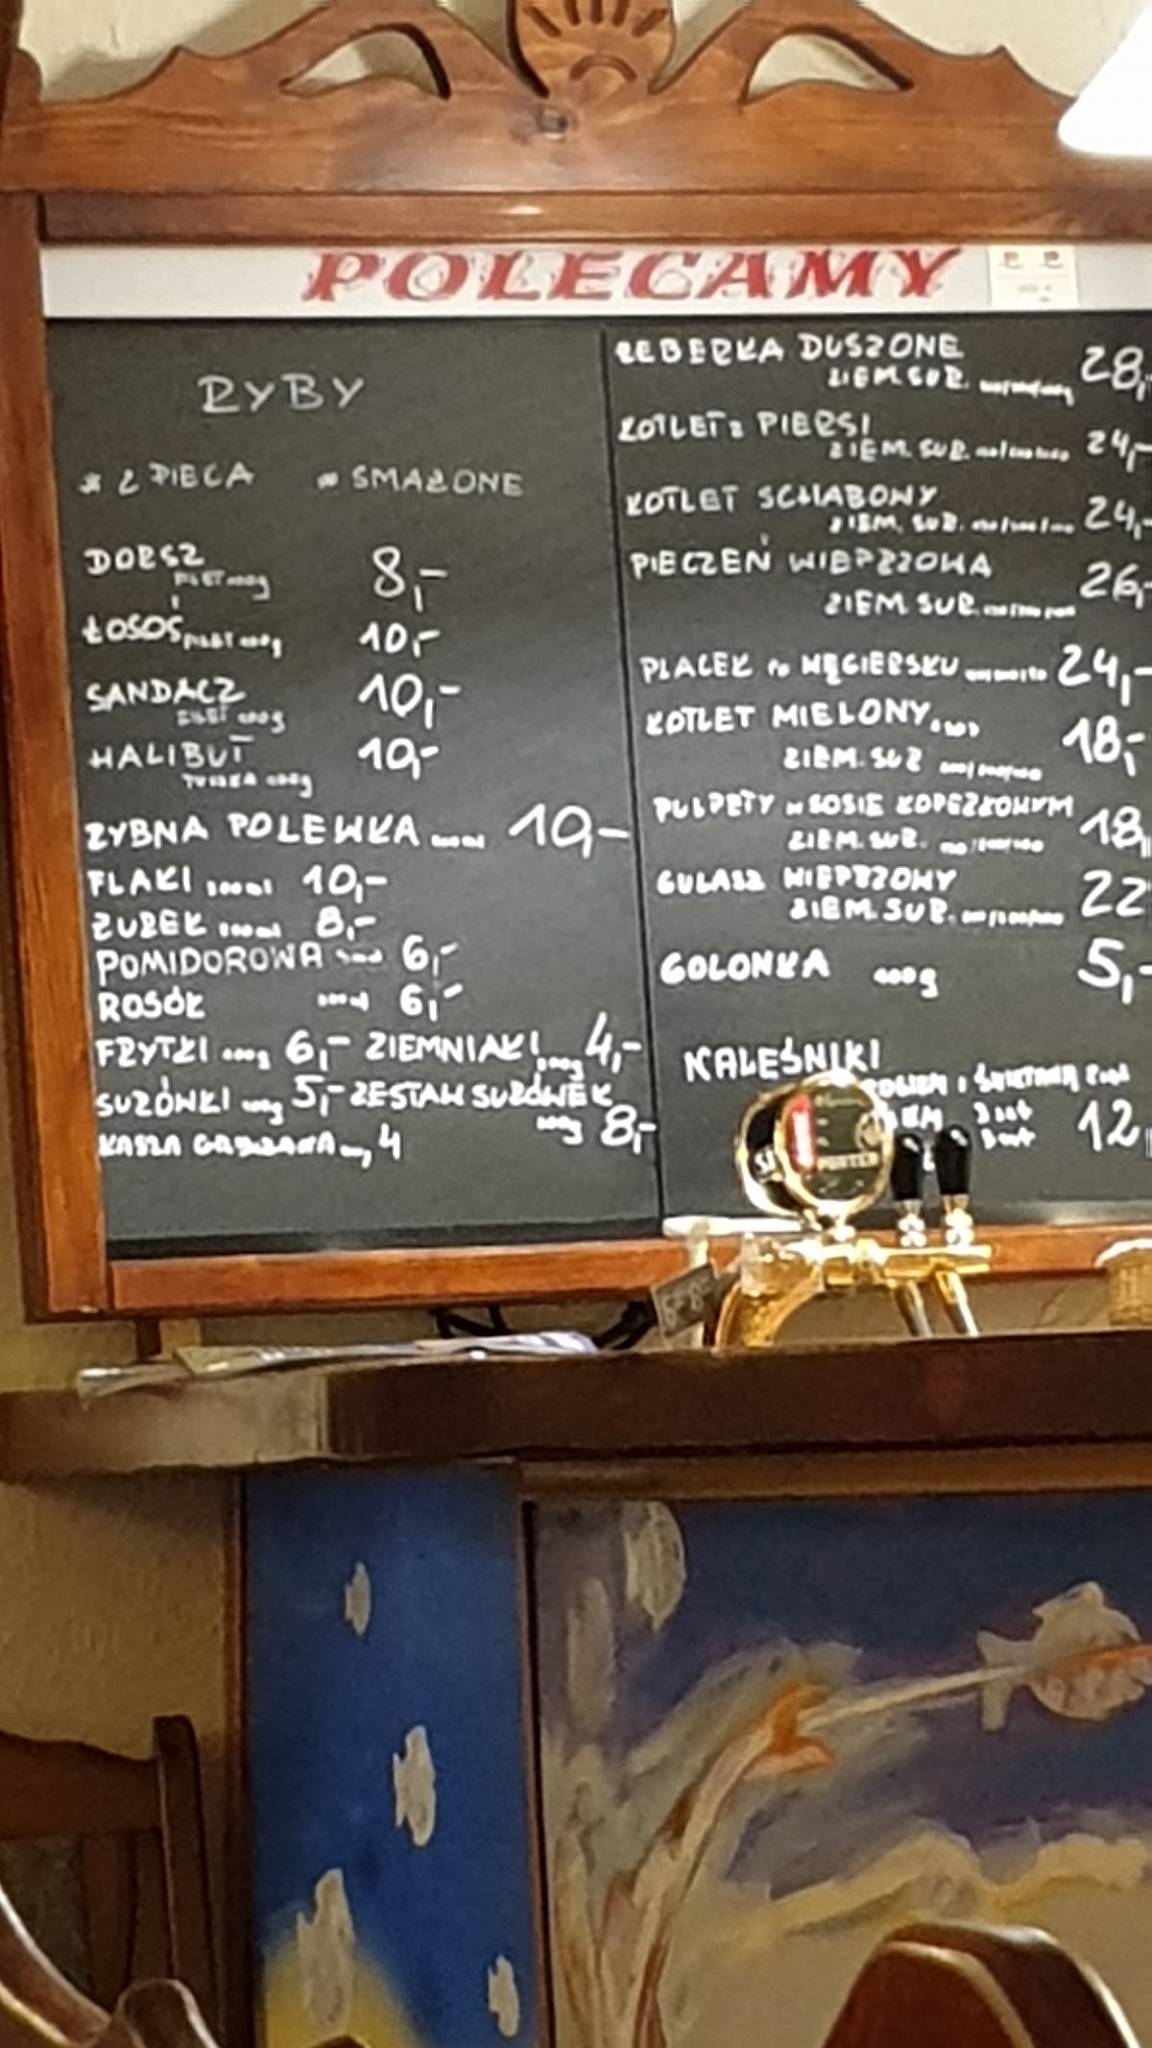 POLECAMY
RYBY
* Z PIECA * SMAŻONE
DORSZ 8,-
ŁOSOŚ 10,-
SANDACZ 10,-
HALIBUT 10,-
RYBNA POLEWKA 10,-
FLAKI 10,-
ŻUREK 8,-
POMIDOROWA 6,-
ROSÓŁ 6,-
FRYTKI 6,- ZIEMNIAKI 4,-
SURÓWKI 5,- ZESTAW SURÓWEK
8,-
KASZA 4
ŻEBERKA DUSZONE
ZIEM. SUR. 28,-
KOTLET z PIERSI
ZIEM. SUR. 24,-
KOTLET SCHABOWY
ZIEM. SUR. 24,-
PIECZEŃ WIEPRZOWA
ZIEM. SUR. 26,-
PLACEK PO WĘGIERSKU 24,-
KOTLET MIELONY
ZIEM. SUR 18,-
PULPETY W SOSIE KOPERKOWYM
ZIEM. SUR. 18,
GULASZ WIEPRZOWY
ZIEM. SUR. 22
GOLONKA 5,-
NALEŚNIKI
I ŚMIETANĄ
12,
PORTER